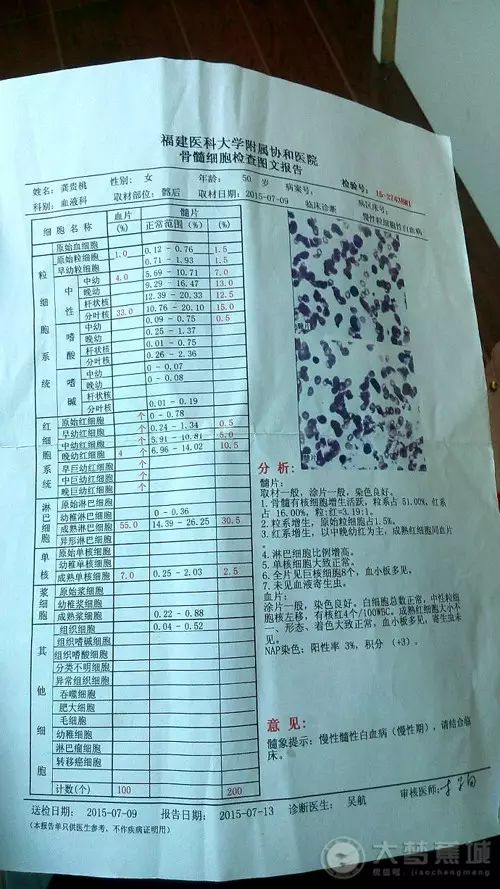 福建医科大学附属协和医院
骨髓细胞检查图文报告
姓名: 龚贵桃 性别: 女 年龄: 50 岁 病案号: 检验号:
科别: 血液科 取材部位: 髂后 取材日期: 2015-07-09 临床诊断 病区床号:
慢性粒细胞性白血病
细 胞 名 称 血片 (%) 髓片 正常范围 (%) (%)
粒细胞系统
原始血细胞
原始粒细胞 1.0 0.12 - 0.76 1.5
早幼粒细胞 0.71 - 1.93 1.5
中性 中幼 4.0 5.69 - 10.71 7.0
晚幼 9.29 - 16.47 13.0
杆状核 12.39 - 20.33 12.5
分叶核 33.0 10.76 - 20.10 15.0
嗜酸 中幼 0.09 - 0.75 0.5
晚幼 0.25 - 1.37
杆状核 0.01 - 0.75
分叶核 0.26 - 2.36
嗜碱 中幼 0 - 0.07
晚幼 0 - 0.08
杆状核
分叶核 0.01 - 0.19
红细胞系统
原始红细胞 个 0 - 0.78
早幼红细胞 个 0.24 - 1.34 0.5
中幼红细胞 个 5.91 - 10.81 5.0
晚幼红细胞 4 个 6.96 - 14.02 10.5
早巨幼红细胞 个
中巨幼红细胞 个
晚巨幼红细胞 个
淋巴细胞
原始淋巴细胞
幼稚淋巴细胞 0 - 0.36
成熟淋巴细胞 55.0 14.39 - 26.25 30.5
异形淋巴细胞
单核
原始单核细胞
幼稚单核细胞
成熟单核细胞 7.0 0.25 - 2.03 2.5
浆细胞
原始浆细胞
幼稚浆细胞
成熟浆细胞 0.22 - 0.88
其他细胞
组织细胞 0.04 - 0.52
组织嗜碱细胞
组织嗜酸细胞
分类不明细胞
异常组织细胞
吞噬细胞
肥大细胞
毛细胞
幼稚细胞
淋巴瘤细胞
转移癌细胞
计数(个) 100 200
分析:
髓片:
取材一般, 涂片一般, 染色良好。
1. 骨髓有核细胞增生活跃, 粒系占 51.00%, 红系
占 16.00%, 粒:红=3.19:1。
2. 粒系增生, 原始粒细胞占1.5%。
3. 红系增生, 以中晚幼红为主, 成熟红细胞同血片
。
4. 淋巴细胞比例增高。
5. 单核细胞大致正常。
6. 全片见巨核细胞8个, 血小板多见。
7. 未见血液寄生虫。
血片:
涂片一般, 染色良好。白细胞总数正常, 中性粒细
胞核左移, 有核红4个/100WSC。成熟红细胞大小不
一、形态、着色大致正常。血小板多见, 寄生虫未
见。
NAP染色: 阳性率 3%, 积分 (+3)。
意见:
髓象提示: 慢性髓性白血病 (慢性期), 请结合临
床。
送检日期: 2015-07-09 报告日期: 2015-07-13 诊断医生: 吴航 审核医师:
(本报告单只供医生参考, 不作疾病证明用)
大梦蕉城
微信号: jiaochengmeng